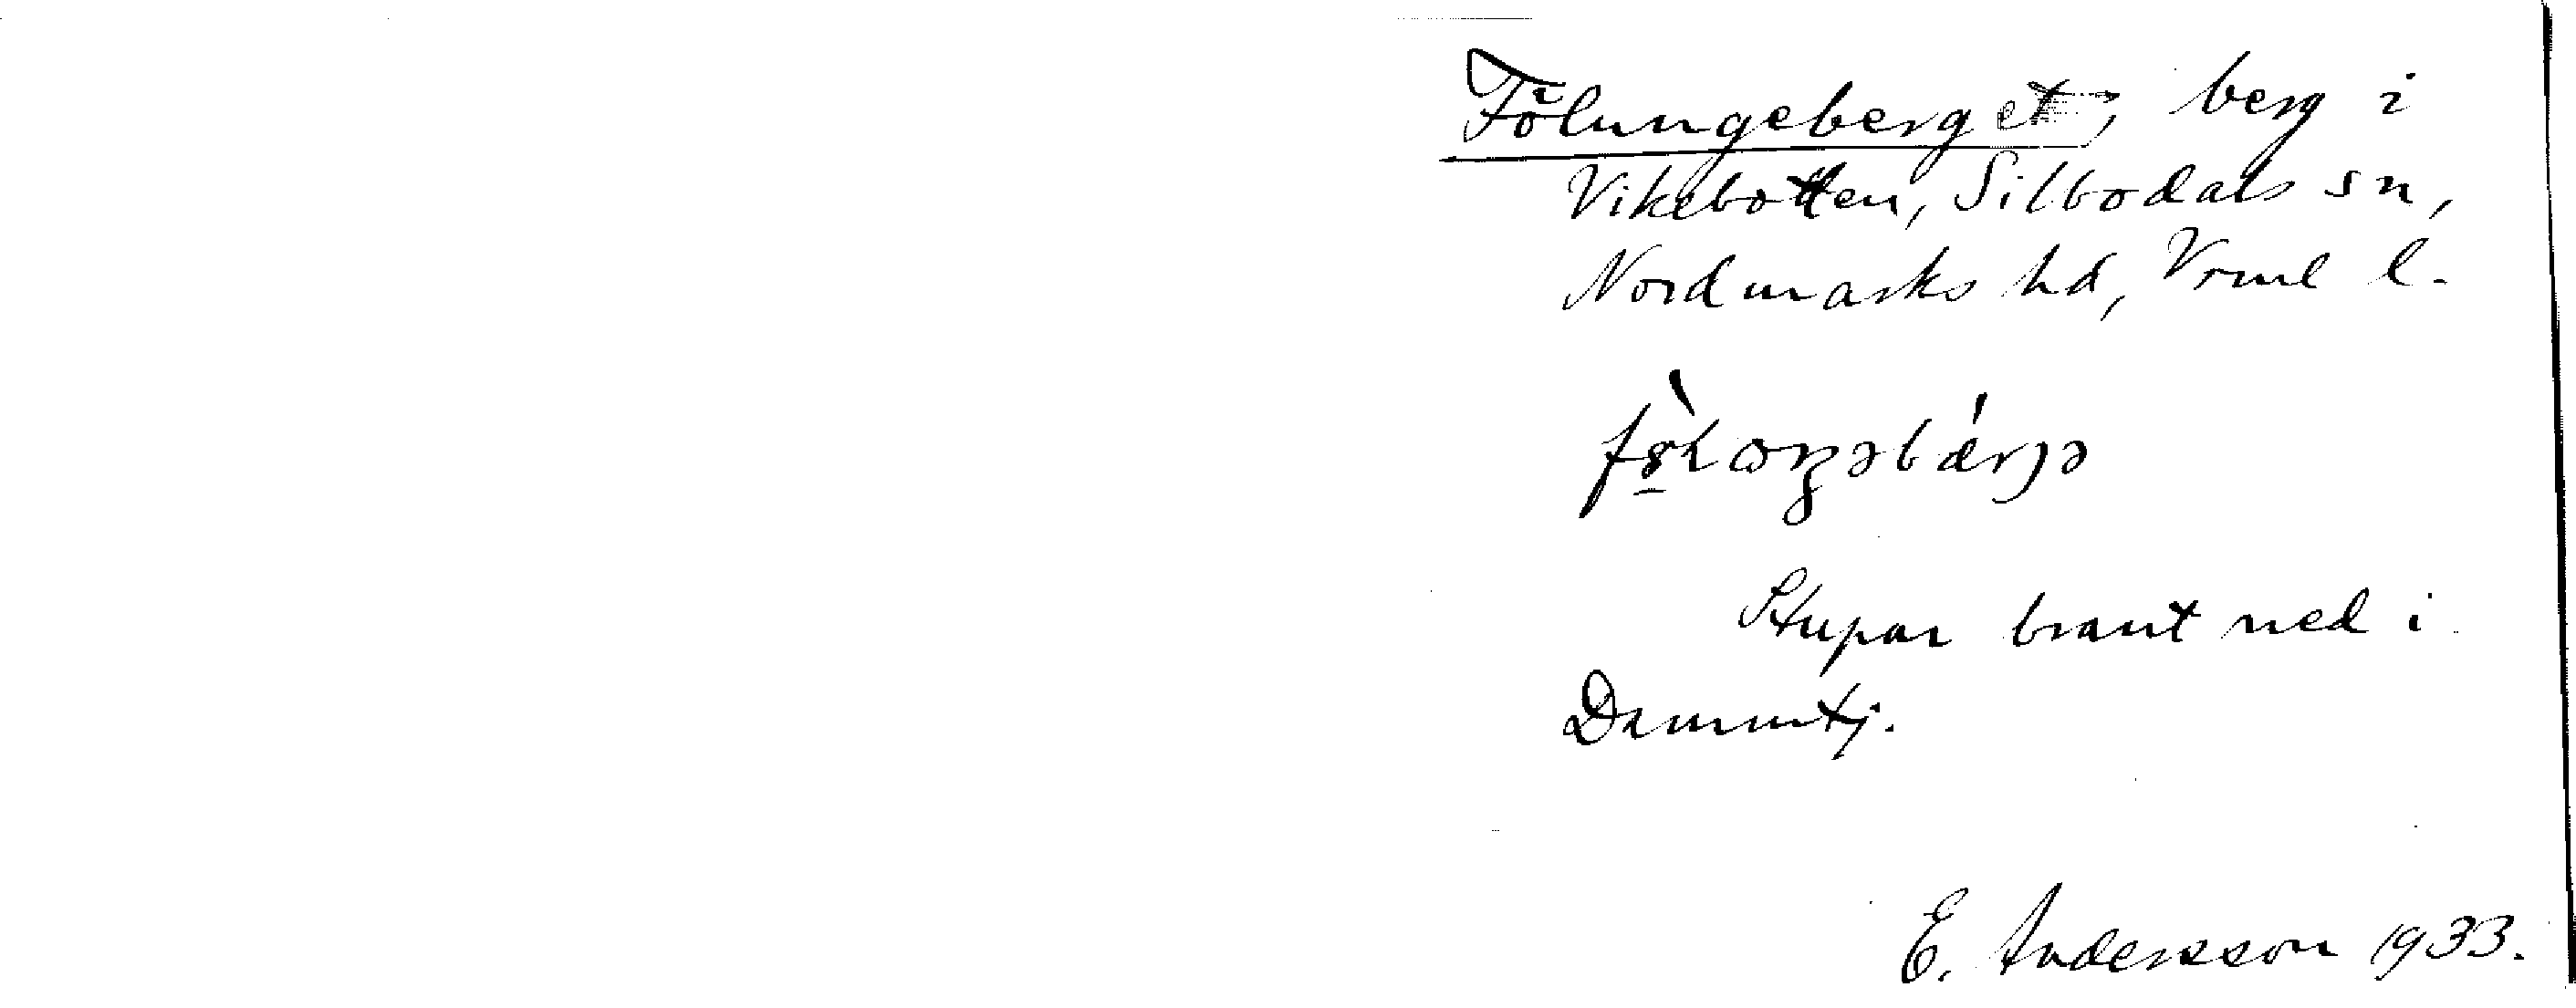 Fölungeberget, berg i
Vikebotten, Silbodals sn,
Nordmarks hd, Vrml l.
Stupar brant ned i
Dammtj.
E. Andersson 1933.